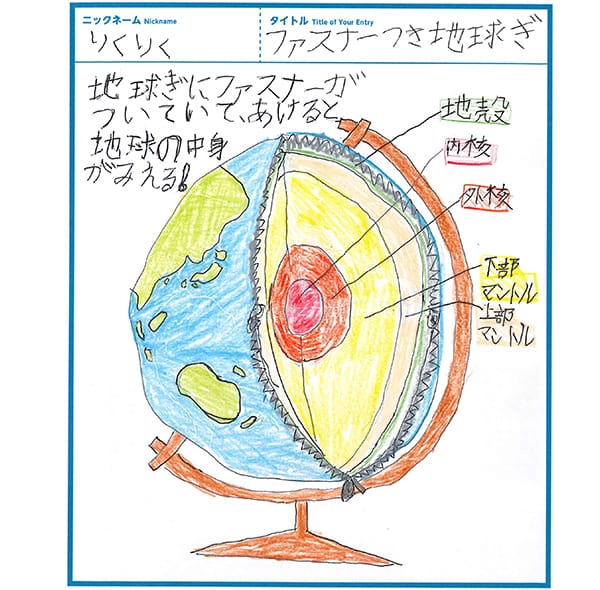 ニックネーム Nickname
りくりく
タイトル Title of Your Entry
ファスナーつき地球ぎ
地球ぎにファスナーが
ついていて、あけると、
地球の中身
がみえる!
地殻
内核
外核
下部
マントル
上部
マントル